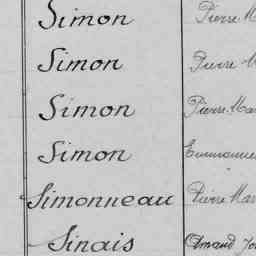 Simon Pierre M
Simon Pierre M
Simon Pierre Mar
Simon Emmanuel
Simonneau Pierre Mar
Sinais Amand Jo